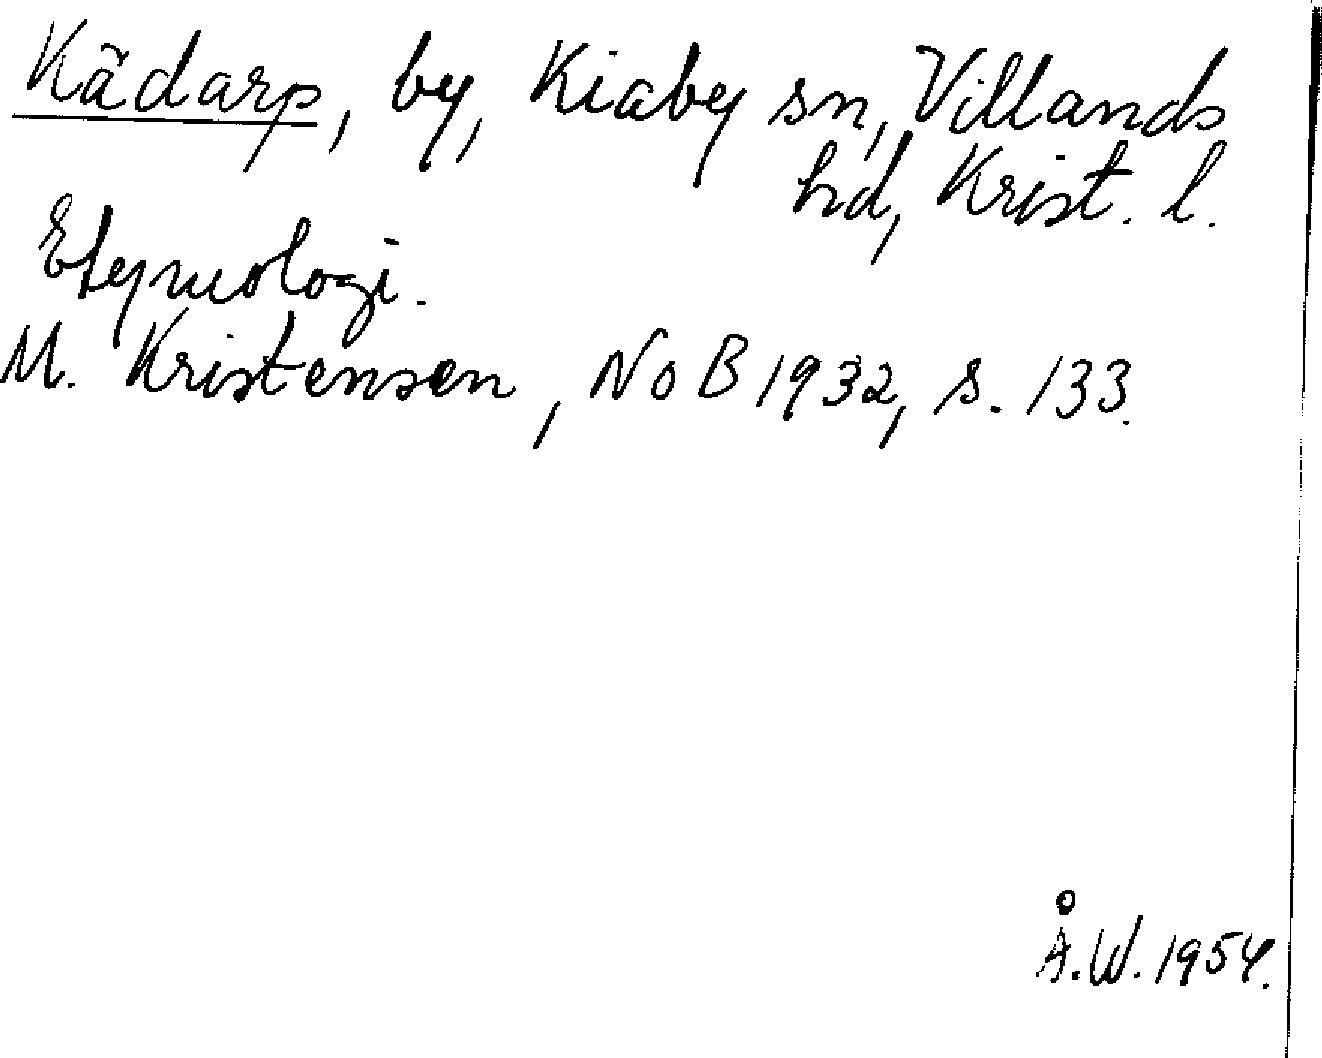 Kädarp, by, Kiaby sn, Villands
hd, Krist. l.
Etymologi.
M. Kristensen, NoB 1932, s. 133.
Å.W. 1954.